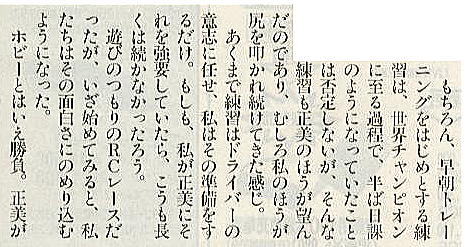 もちろん、早朝トレー
ニングをはじめとする練
習は、世界チャンピオン
に至る過程で、半ば日課
のようになっていたこと
は否定しないが、そんな
練習も正美のほうが望ん
だのであり、むしろ私のほうが
尻を叩かれ続けてきた感じ。
あくまで練習はドライバーの
意志に任せ、私はその準備をす
るだけ。もしも、私が正美にそ
れを強要していたら、こうも長
くは続かなかったろう。
遊びのつもりのRCレースだ
ったが、いざ始めてみると、私
たちはその面白さにのめり込む
ようになった。
ホビーとはいえ勝負。正美が